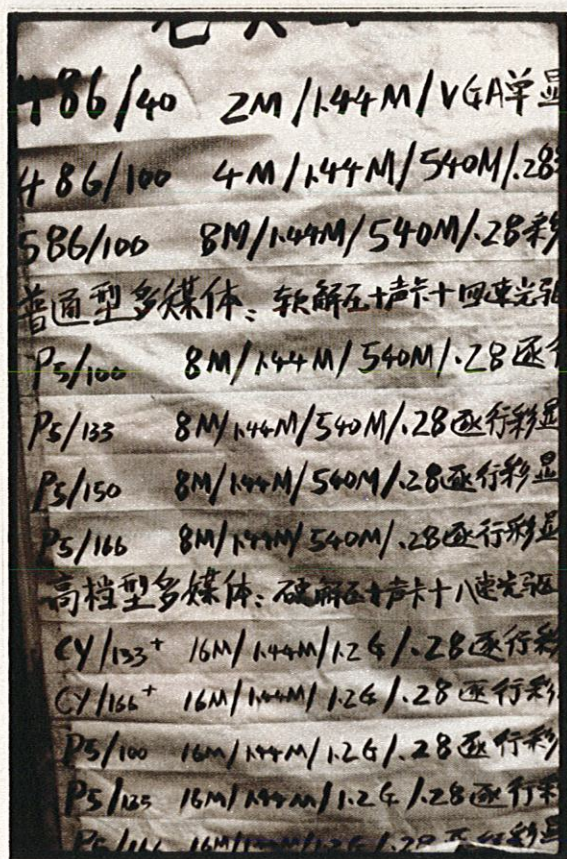 486/40 2M/1.44M/VGA单显
486/100 4M/1.44M/540M/.28
586/100 8M/1.44M/540M/.28彩
普通型多媒体:软解压+声卡+四速光驱
P5/100 8M/1.44M/540M/.28逐行
P5/133 8M/1.44M/540M/.28逐行彩显
P5/150 8M/1.44M/540M/.28逐行彩显
P5/166 8M/1.44M/540M/.28逐行彩显
高档型多媒体:硬解压+声卡+八速光驱
CY/133+ 16M/1.44M/1.2G/.28逐行彩
CY/166+ 16M/1.44M/1.2G/.28逐行彩
P5/100 16M/1.44M/1.2G/.28逐行彩
P5/133 16M/1.44M/1.2G/.28逐行彩
P5/166 16M/1.44M/1.2G/.28逐行彩显